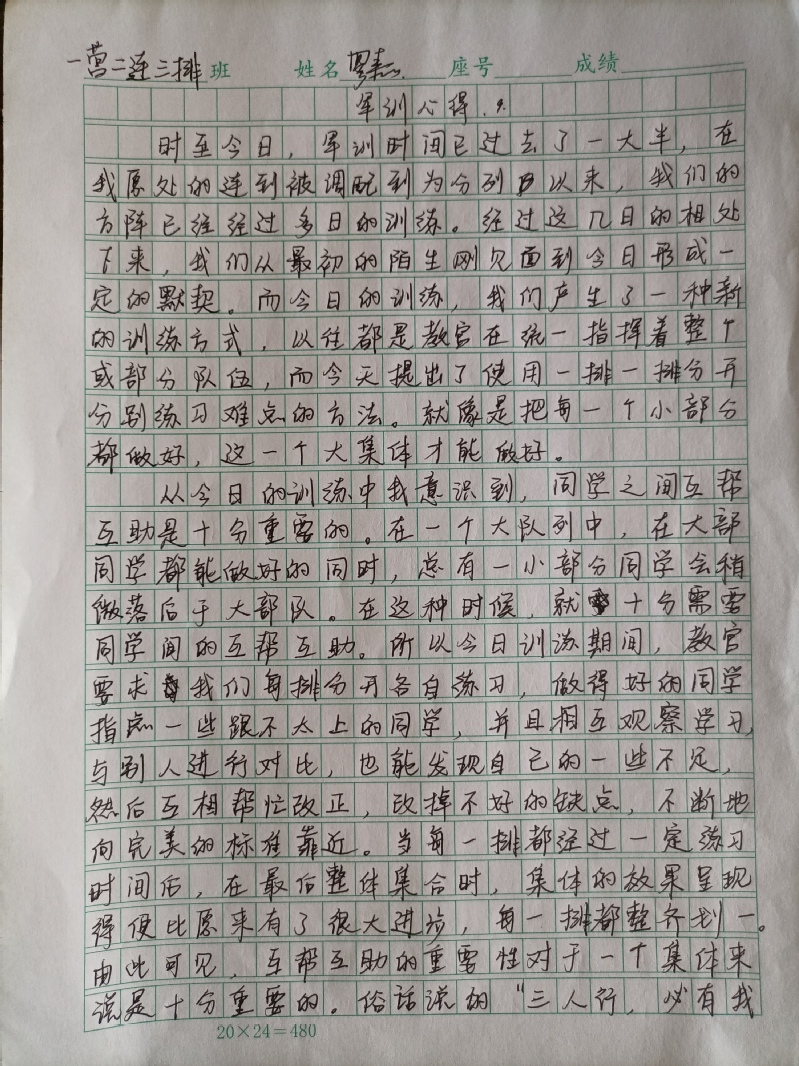 一营二连三排班 姓名 座号 成绩
军训心得.9.
时至今日，军训时间已过去了一大半，在
我原处的连到被调配到为分列以来，我们的
方阵已经经过多日的训练。经过这几日的相处
下来，我们从最初的陌生刚见面到今日形成一
定的默契。而今日的训练，我们产生了一种新
的训练方式，以往都是教官在统一指挥着整个
或部分队伍，而今天提出了使用一排一排分开
分别练习难点的方法。就像是把每一个小部分
都做好，这一个大集体才能做好。
从今日的训练中我意识到，同学之间互帮
互助是十分重要的。在一个大队列中，在大部
同学都能做好的同时，总有一小部分同学会稍
微落后于大部队。在这种时候，就十分需要
同学间的互帮互助。所以今日训练期间，教官
要求我们每排分开各自练习，做得好的同学
指点一些跟不太上的同学，并且相互观察学习，
与别人进行对比，也能发现自己的一些不足，
然后互相帮忙改正，改掉不好的缺点，不断地
向完美的标准靠近。当每一排都经过一定练习
时间后，在最后整体集合时，集体的效果呈现
得便比原来有了很大进步，每一排都整齐划一。
由此可见，互帮互助的重要性对于一个集体来
说是十分重要的。俗话说的“三人行，必有我
20×24=480